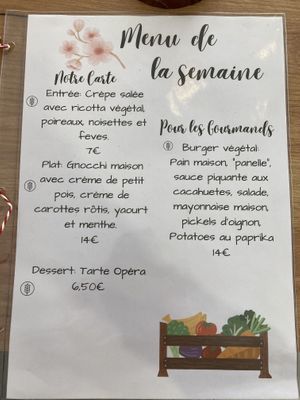 Menu de
la semaine
Notre Carte
Entrée: Crêpe salée
avec ricotta végétal,
poireaux, noisettes et
feves.
7€
Plat: Gnocchi maison
avec crème de petit
pois, crème de
carottes rôtis, yaourt
et menthe.
14€
Dessert: Tarte Opéra
6,50€
Pour les Gourmands
Burger végétal:
Pain maison, "panelle",
sauce piquante aux
cacahuetes, salade,
mayonnaise maison,
pickels d'oignon,
Potatoes au paprika
14€